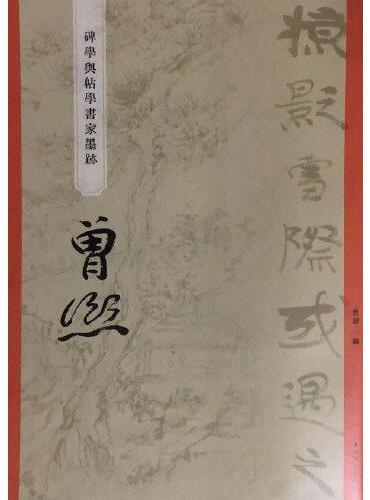 碑學與帖學書家墨跡
曾熙
掠影雪際或遇之
曾迎三 編